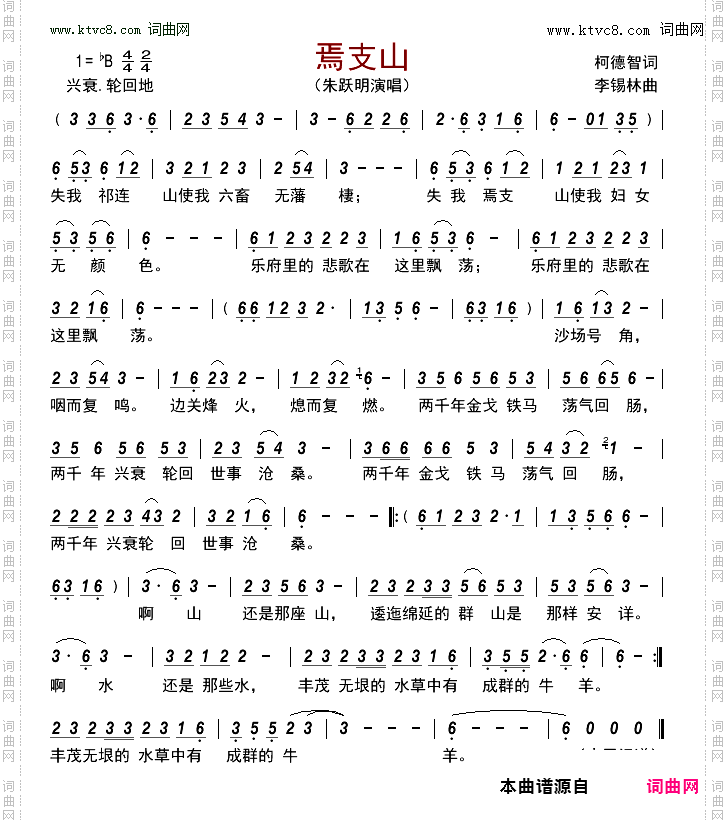 www.ktvc8.com 词曲网
www.ktvc8.com 词曲网
焉支山
1= ♭B 4/4 2/4
柯德智词
兴衰.轮回地
（朱跃明演唱）
李锡林曲
( 3 3 6 3· 6 | 2 3 5 4 3 - | 3 - 6 2 2 6 | 2· 6 3 1 6 | 6 - 0 1 3 5 ) |
6 5 3 6 1 2 | 3 2 1 2 3 | 2 5 4 | 3 - - - | 6 5 3 6 1 2 | 1 2 1 2 3 1
失我 祁连 山使我 六畜 无藩 棲； 失 我 焉支 山使我 妇 女
5 3 5 6 | 6 - - - | 6 1 2 3 2 2 3 | 1 6 5 3 6 | 6 1 2 3 2 2 3
无 颜 色。 乐府里的 悲歌在 这里飘 荡； 乐府里的 悲歌在
3 2 1 6 | 6 - - - | ( 6 6 1 2 3 2· | 1 3 5 6 - | 6 3 1 6 ) | 1 6 1 3 2 -
这里飘 荡。 沙场号 角，
2 3 5 4 3 - | 1 6 2 3 - | 1 2 3 2 1 6 - | 3 5 6 5 6 5 3 | 5 6 6 5 6
咽而复 鸣。 边关烽 火， 熄而复 燃。 两千年金戈 铁马 荡气回 肠，
3 5 6 5 6 5 3 | 2 3 5 4 3 - | 3 6 6 6 5 6 5 3 | 5 4 3 2 2 1 -
两千 年 兴衰 轮回 世事 沧 桑。 两千年 金戈 铁 马 荡气 回 肠，
2 2 2 2 3 4 3 2 | 3 2 1 6 | 6 - - - ‖: ( 6 1 2 3 2·1 | 1 3 5 6 6 -
两千年 兴衰轮 回 世事 沧 桑。
6 3 1 6 ) | 3· 6 3 - | 2 3 5 6 3 - | 2 3 2 3 3 5 6 5 | 5 3 5 6 3 -
啊 山 还是那座 山， 逶迤绵延的 群 山是 那样 安 详。
3· 6 3 - | 3 2 1 2 2 - | 2 3 2 3 3 2 3 1 6 | 3 5 5 2· 6 | 6 - :‖
啊 水 还是 那些水， 丰茂 无垠的 水草中有 成群的 牛 羊。
2 3 2 3 2 2 3 1 6 | 3 5 5 2 3 | 3 - - - | 6 - - - | 6 0 0 0 ‖
丰茂无垠的 水草中有 成群的 牛 羊。
本曲谱源自 词曲网